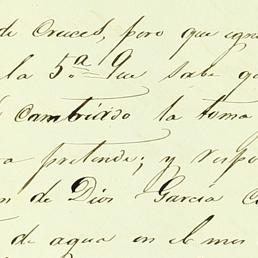 de Cruces, pero que igno
la 5.ª Que sabe q
cambiado la toma
pretende; y respo
n de Dios Garcia C
de agua en el mes